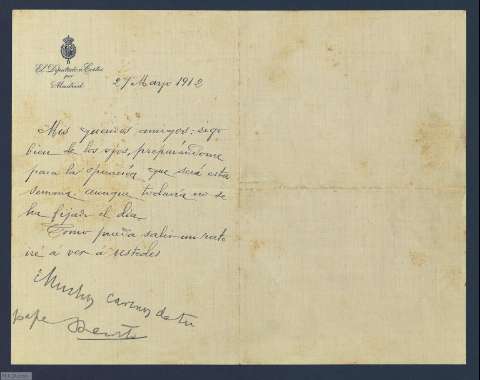 El Diputado a Cortes
por
Madrid
27 Mayo 1912
Mis queridos amigos: sigo
bien de los ojos, preparándome
para la operación que será esta
semana aunque todavía no se
ha fijado el día.
Como pueda salir un rato
iré á ver á ustedes
Muchos cariños de tu
papa